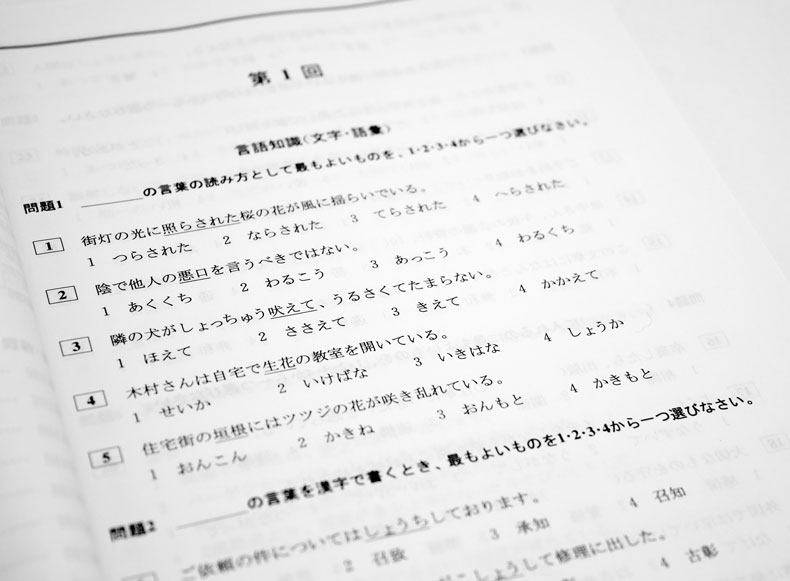 第1回
言語知識(文字・語彙)
問題1 ＿＿＿の言葉の読み方として最もよいものを、1・2・3・4から一つ選びなさい。
1 街灯の光に照らされた桜の花が風に揺らいでいる。
1 つらされた 2 ならされた 3 てらされた 4 へらされた
2 陰で他人の悪口を言うべきではない。
1 あくくち 2 わるこう 3 あっこう 4 わるくち
3 隣の犬がしょっちゅう吠えて、うるさくてたまらない。
1 ほえて 2 ささえて 3 きえて 4 かかえて
4 木村さんは自宅で生花の教室を開いている。
1 せいか 2 いけばな 3 いきはな 4 しょうか
5 住宅街の垣根にはツツジの花が咲き乱れている。
1 おんこん 2 かきね 3 おんもと 4 かきもと
問題2 ＿＿＿の言葉を漢字で書くとき、最もよいものを1・2・3・4から一つ選びなさい。
ご依頼の件についてはしょうちしております。
2 召致 3 承知 4 召知
こしょうして修理に出した。
4 古彰